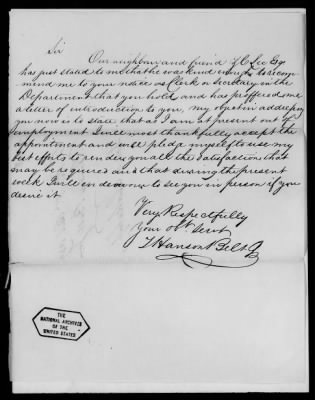 Sir
Our neighbour and friend Z C Lee Esq
has just stated to me that he was kind enough to recom
mend me to your notice as Clerk or Secretary in the
Department that you hold, and has proffered me
a letter of introduction to you, my object in addressing
you now is to state that as I am at present out of
employment I will most thankfully accept the
appointment and will pledge myself to use my
best efforts to render you all the satisfaction that
may be required and that during the present
week I will endeavour to see you in person if you
desire it
Very Respectfully
Your Obt Servt
T Hanson Belt
THE
NATIONAL ARCHIVES
OF THE
UNITED STATES